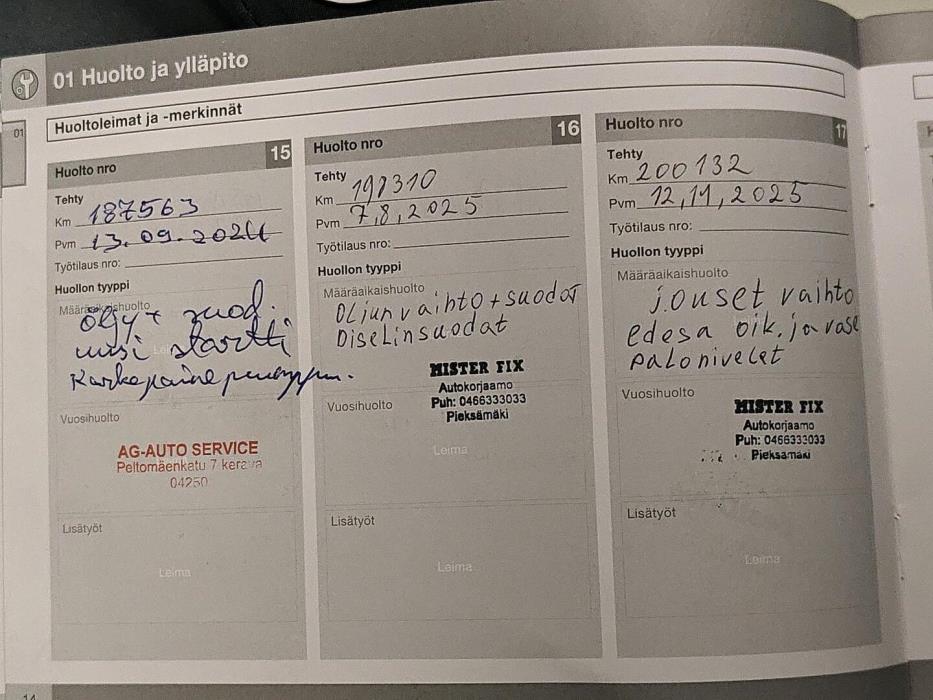 01 Huolto ja ylläpito
01
Huoltoleimat ja -merkinnät
Huolto nro 15
Tehty
Km 187563
Pvm 13.09.2024
Työtilaus nro:
Huollon tyyppi
Määräaikaishuolto
öljy + suod.
uusi startti
Korkeapaine
Vuosihuolto
AG-AUTO SERVICE
Peltomäenkatu 7 kerava
04250
Lisätyöt
Leima
Huolto nro 16
Tehty
Km 198310
Pvm 7,8,2025
Työtilaus nro:
Huollon tyyppi
Määräaikaishuolto
Oljunvaihto + suodat
Diselinsuodat
MISTER FIX
Autokorjaamo
Puh: 0466333033
Pieksämäki
Vuosihuolto
Leima
Lisätyöt
Leima
Huolto nro 17
Tehty
Km 200132
Pvm 12,11,2025
Työtilaus nro:
Huollon tyyppi
Määräaikaishuolto
jouset vaihto
edesa oik. ja vase
palonivelet
Vuosihuolto
MISTER FIX
Autokorjaamo
Puh: 0466333033
Pieksämäki
Lisätyöt
Leima
14